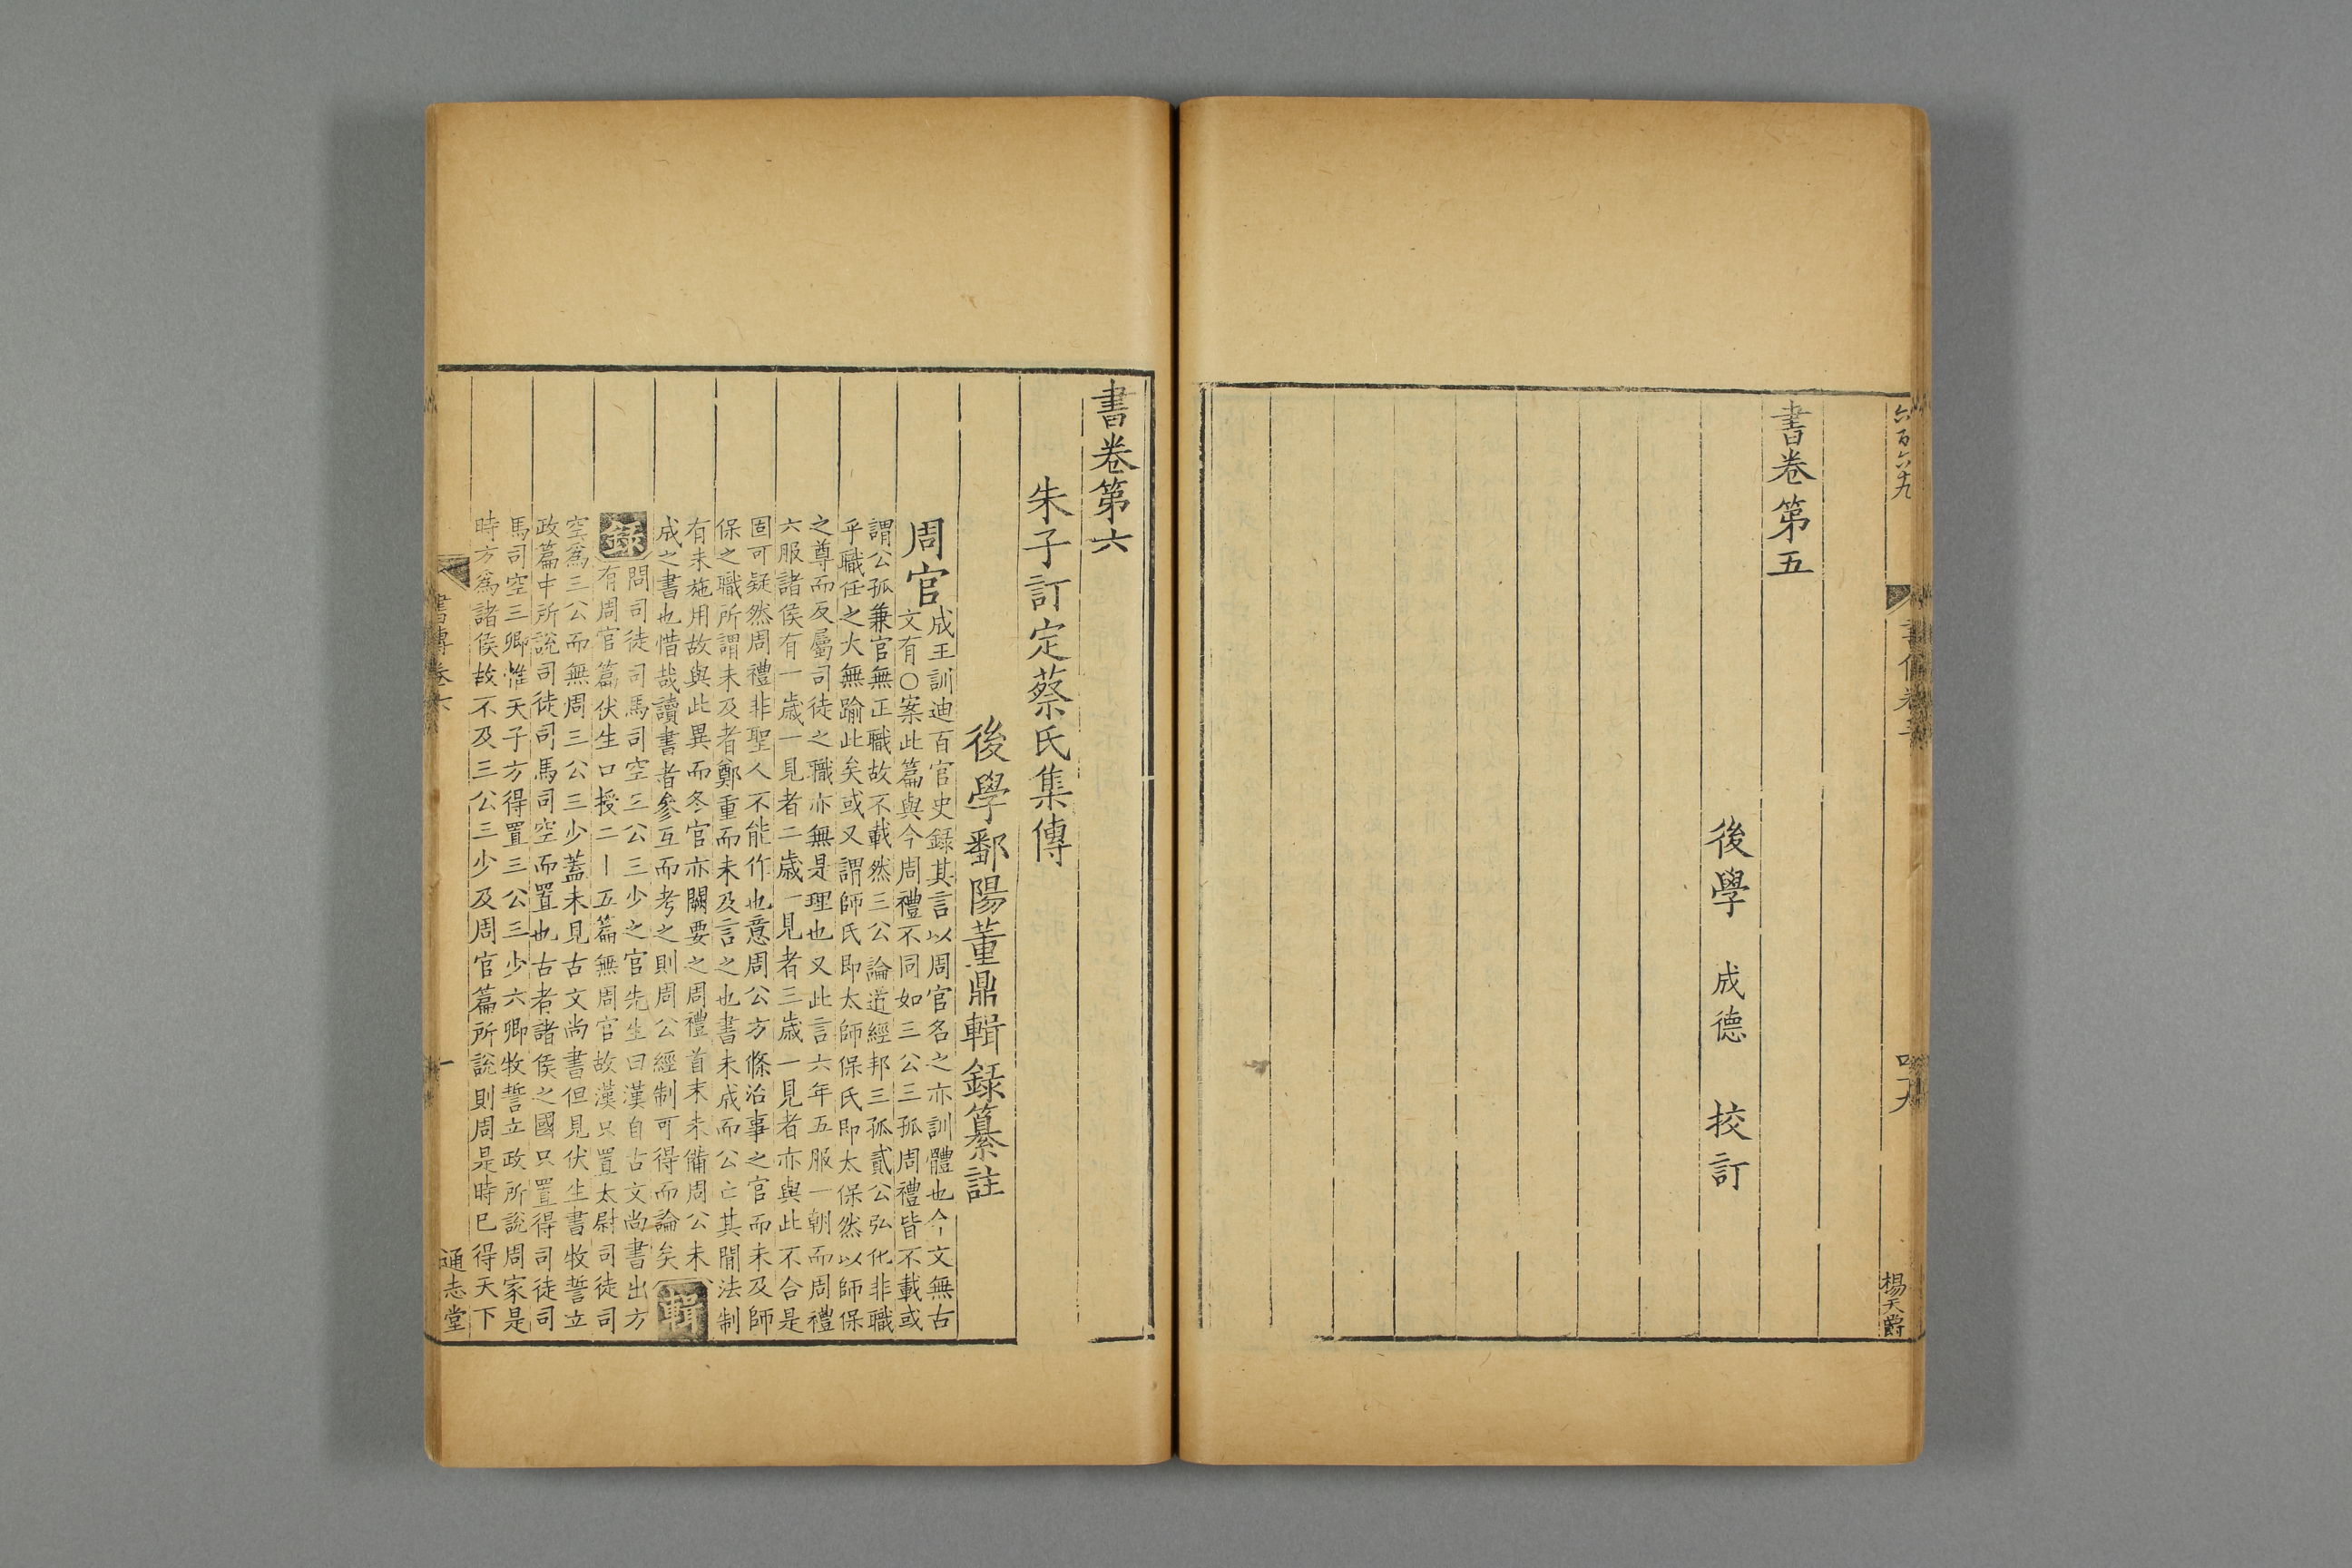 六百六十九
四十九
楊天爵
書卷第五
後學 成德 校訂
書卷第六
朱子訂定蔡氏集傳
後學鄱陽董鼎輯錄纂註
周官
成王訓迪百官史録其言以周官名之亦訓體也今文無古
文有○案此篇與今周禮不同如三公三孤周禮皆不載或
謂公孤兼官無正職故不載然三公論道經邦三孤貳公弘化非職
乎職任之大無踰此矣或又謂師氏即太師保氏即太保然以師保
之尊而反屬司徒之職亦無是理也又此言六年五服一朝而周禮
六服諸侯有一歲一見者二歲一見者三歲一見者亦與此不合是
固可疑然周禮非聖人不能作也意周公方條治事之官而未及師
保之職所謂未及者鄭重而未及言之也書未成而公亡其間法制
有未施用故與此異而冬官亦闕要之周禮首末未備周公未
成之書也惜哉讀書者參互而考之則周公經制可得而論矣
輯
錄
問司徒司馬司空三公三少之官先生曰漢自古文尚書出方
有周官篇伏生口授二十五篇無周官故漢只置太尉司徒司
空爲三公而無周三公三少蓋未見古文尚書但見伏生書牧誓立
政篇中所說司徒司馬司空而置也古者諸侯之國只置得司徒司
馬司空三卿惟天子方得置三公三少六卿牧誓立政所說周家是
時方爲諸侯故不及三公三少及周官篇所說則周是時已得天下
書傳卷六
一
通志堂